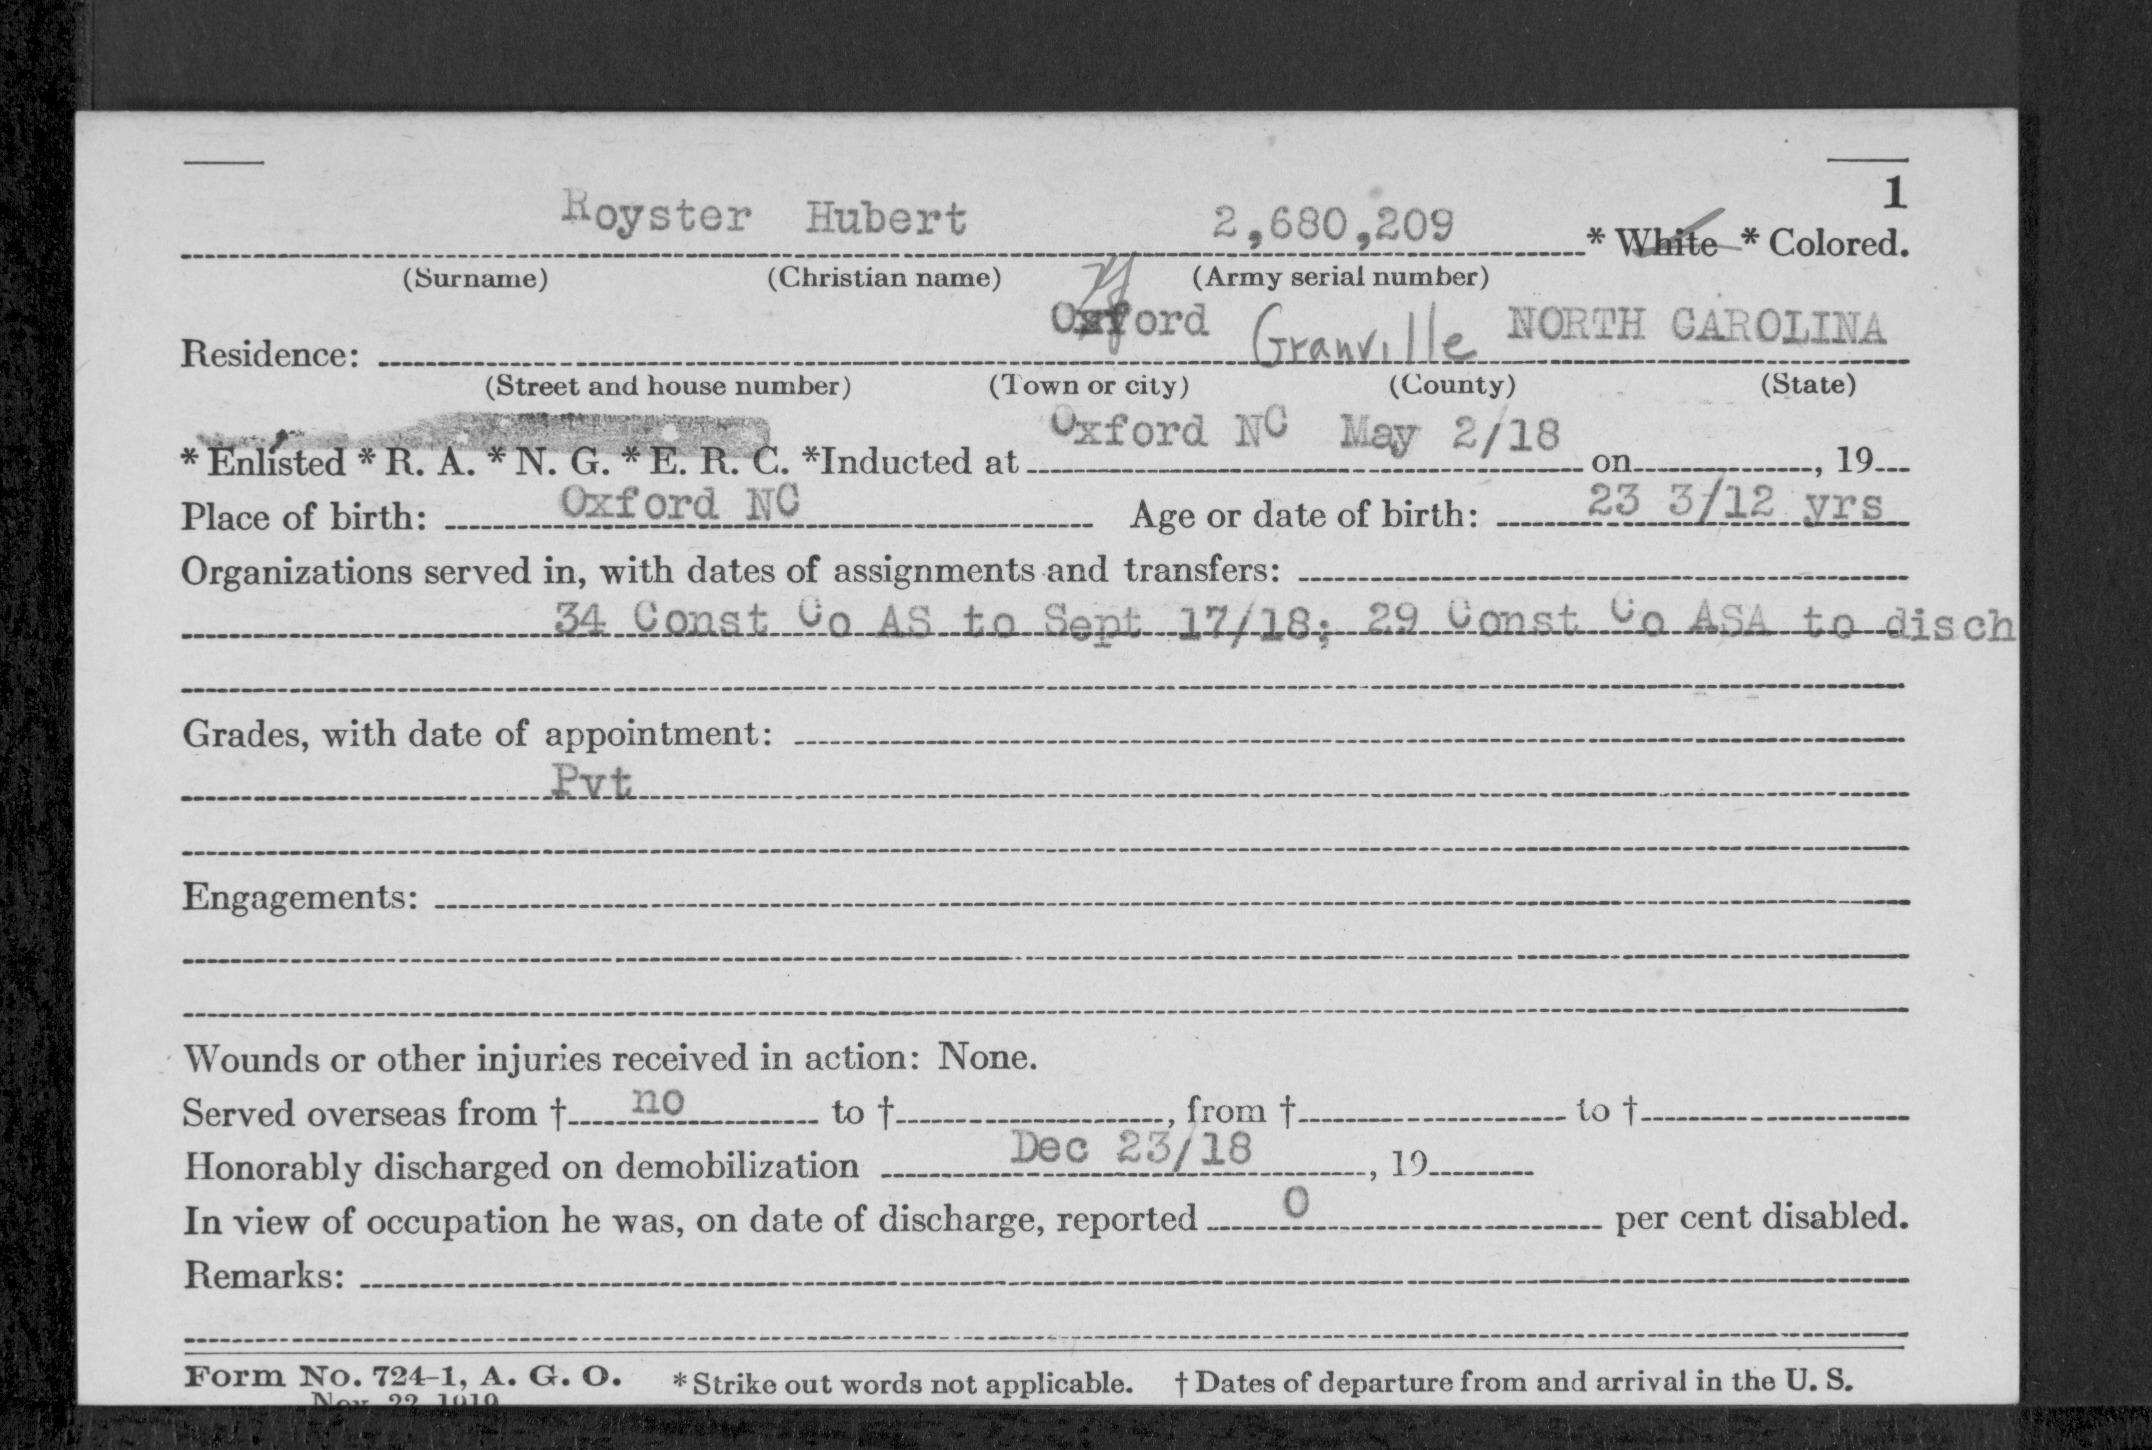 1
Royster Hubert 2,680,209 * White * Colored.
(Surname) (Christian name) (Army serial number)
Residence: Oxford Granville NORTH CAROLINA
(Street and house number) (Town or city) (County) (State)
* Enlisted * R. A. * N. G. * E. R. C. *Inducted at Oxford NC May 2/18 on , 19
Place of birth: Oxford NC Age or date of birth: 23 3/12 yrs
Organizations served in, with dates of assignments and transfers:
34 Const Co AS to Sept 17/18; 29 Const Co ASA to disch
Grades, with date of appointment:
Pvt
Engagements:
Wounds or other injuries received in action: None.
Served overseas from † no to † , from † to †
Honorably discharged on demobilization Dec 23/18 , 19
In view of occupation he was, on date of discharge, reported 0 per cent disabled.
Remarks:
Form No. 724-1, A. G. O. * Strike out words not applicable. † Dates of departure from and arrival in the U. S.
Nov. 22 1919